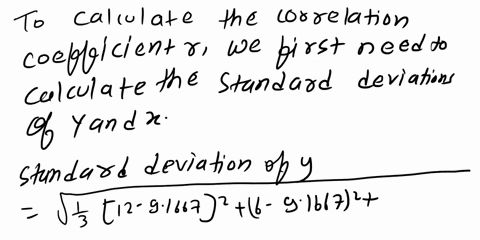 To calculate the correlation
coefficient r, we first need to
calculate the standard deviations
of Y and x.
standard deviation of y
= √1/3 [12-9.1667)² + (6-9.1667)² +